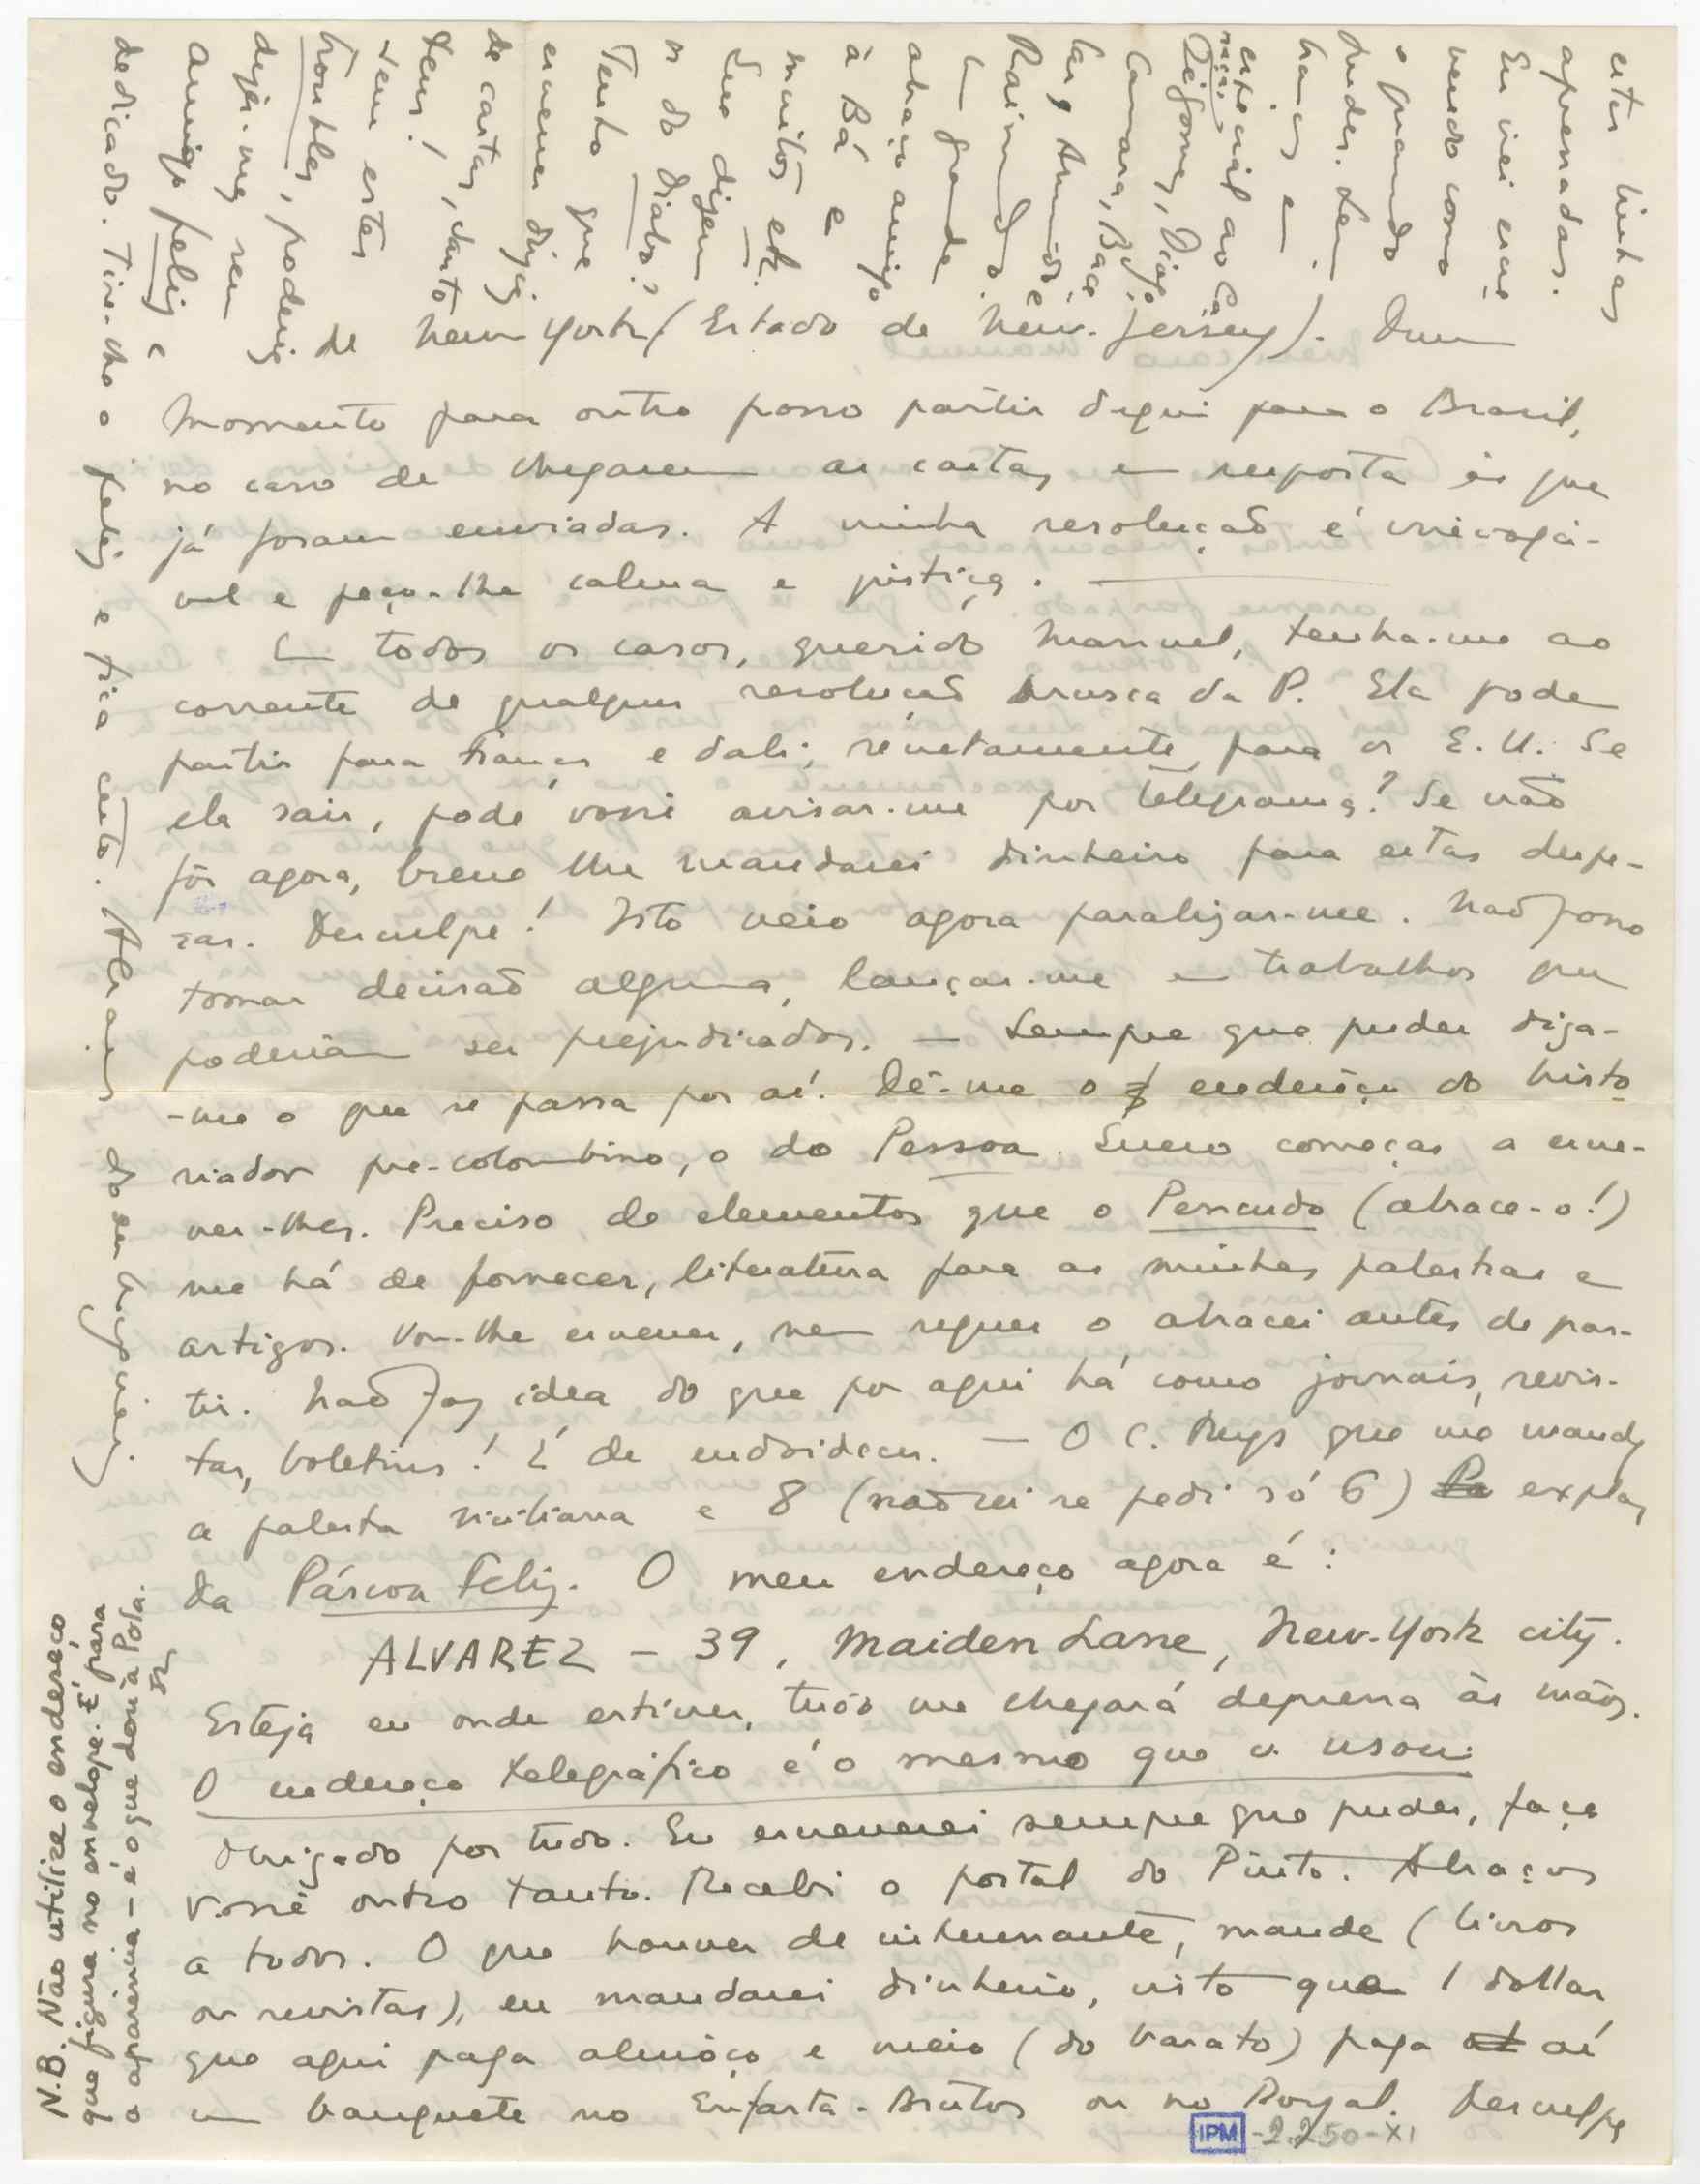 de New York (Estado de New-Jersey). Dum
momento para outro posso partir daqui para o Brasil,
no caso de chegarem as cartas em resposta às que
já foram enviadas. A minha resolução é irrevogá-
vel e peço-lhe calma e justiça. —
Em todos os casos, querido Manuel, tenha-me ao
corrente de qualquer resolução brusca da P. Ela pode
partir para França e dali, secretamente, para os E.U. Se
ela sair, pode você avisar-me por telegrama? Se não
fôr agora, breve lhe mandarei dinheiro para estas despe-
sas. Desculpe! Isto veio agora paralizar-me. Não posso
tomar decisão alguma, lançar-me em trabalhos que
poderiam ser prejudicados. — Sempre que puder diga-
-me o que se passa por aí. Dê-me o endereço do histo-
riador pre-colombino, o do Pessoa. Quero começar a escre-
ver-lhes. Preciso de elementos que o Pescudo (abrace-o!)
me há de fornecer, literatura para as minhas palestras e
artigos. Vou-lhe escrever, nem sequer o abracei antes de par-
tir. Não faz idea do que por aqui há como jornais, revis-
tas, boletins! É de endoidecer. — O C. Ruys que me mande
a palestra e 8 (não sei se pedi só 6) explas
da Páscoa Feliz. O meu endereço agora é:
ALVAREZ – 39, Maiden Lane, New-York city.
Esteja eu onde estiver, tudo me chegará depressa às mãos.
O endereço telegráfico é o mesmo que v. usou.
Obrigado por tudo. Eu escreverei sempre que puder, faça
você outro tanto. Recebi o postal do Pinto. Abraços
a todos. O que houver de interessante, mande (livros
ou revistas), eu mandarei dinheiro, visto que 1 dollar
que aqui paga almôço e meio (do barato) paga aí
um banquete no Enfarta-Brutos ou no Royal. Desculpe
estas linhas
apressadas.
Eu irei escre
vendo como
e quando
puder. Lem
branças em
especial ao Câ
mara,
Câmara,
Raimundo.
Um grande
abraço amigo
à Bá e
muitos etc.
Que dizem
os do Diabo?
Tenho que
escrever dúzias
de cartas, canto
sem estes
troubles, poderia
dizer-me seu
amigo feliz e
dedicado. Tire-lhe o feliz e fica certo. Abraços do seu
N.B. Não utilize o endereço
que figura no envelope. É para
a aparencia – é o que dou à Pola.
IPM -2.250-XI